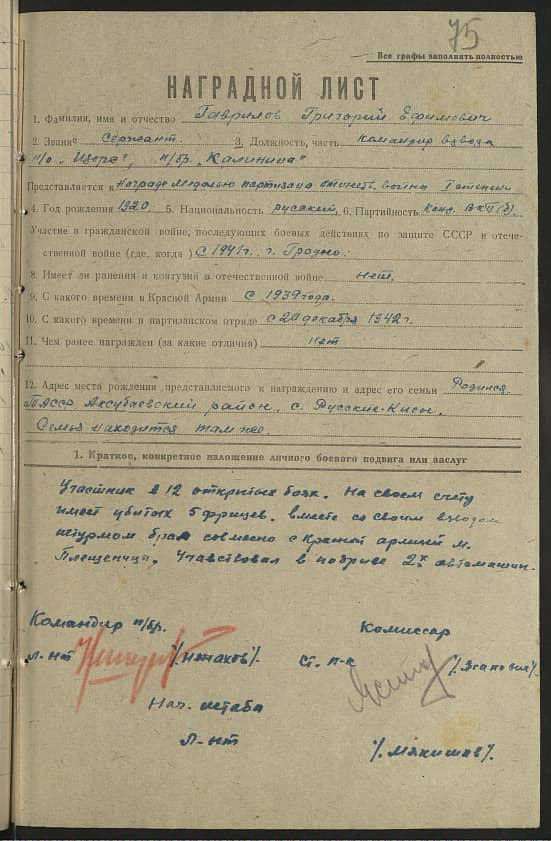 75
Все графы заполнять полностью
НАГРАДНОЙ ЛИСТ
1. Фамилия, имя и отчество Гаврилов Григорий Ефимович
2. Звание Сержант. 3. Должность, часть командир взвода
п/о „Щорс", п/бр. „Калинина"
Представляется к награде Медалью партизана отечеств. войны I степени
4. Год рождения 1920. 5. Национальность русский 6. Партийность Канд. ВКП(б)
Участие в гражданской войне, последующих боевых действиях по защите СССР и отече-
ственной войне (где, когда) с 1941 г. г. Гродно.
8. Имеет ли ранения и контузии в отечественной войне нет.
9. С какого времени в Красной Армии с 1939 года.
10. С какого времени в партизанском отряде с 20 декабря 1942 г.
11. Чем ранее награжден (за какие отличия) нет
12. Адрес места рождения представляемого к награждению и адрес его семьи Родился
ТАССР, Аксубаевский район, с. Русские-Кисы.
Семья находится там же.
1. Краткое, конкретное изложение личного боевого подвига или заслуг
Участник в 12 открытых боях. На своем счету
имеет убитых 5 фрицев. вместе со своим взводом
штурмом брал совмесно с красной армией м.
Плещеницы. Учавствовал в подрыве 2х автомашин.
Командир п/бр. Комиссар
л-нт ст. п-к
Нач. штаба
л-нт /.Мякишев/.